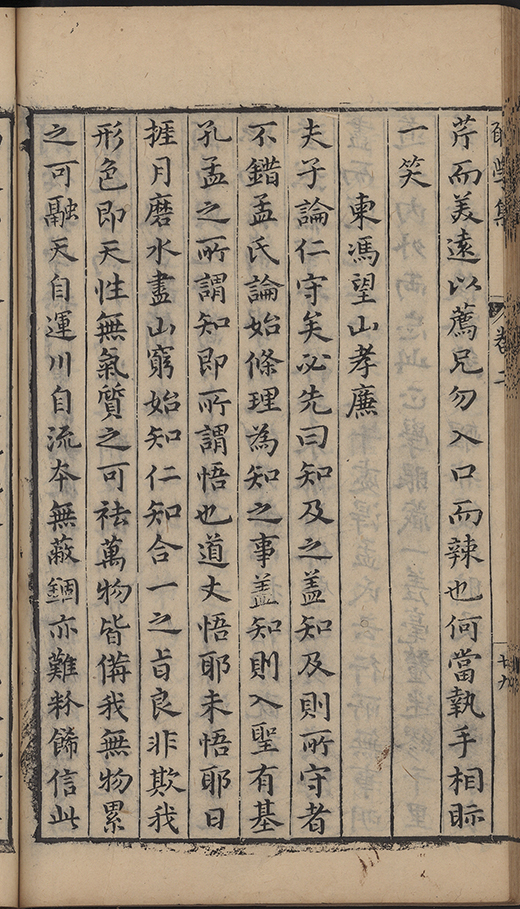 芹而美遠以薦兄勿入口而辣也何當執手相眎
一笑
東馮望山孝廉
夫子論仁守矣必先曰知及之盖知及則所守者
不錯孟氏論始條理為知之事盖知則入聖有基
孔孟之所謂知即所謂悟也道丈悟耶未悟耶日
捱月磨水盡山窮始知仁知合一之旨良非欺我
形色即天性無氣質之可祛萬物皆備我無物累
之可融天自運川自流本無蔽錮亦難粉餙信此
學集
卷二
十九